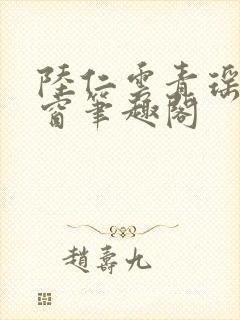 陸仁雲青瑤
窗筆趣閣
趙壽九